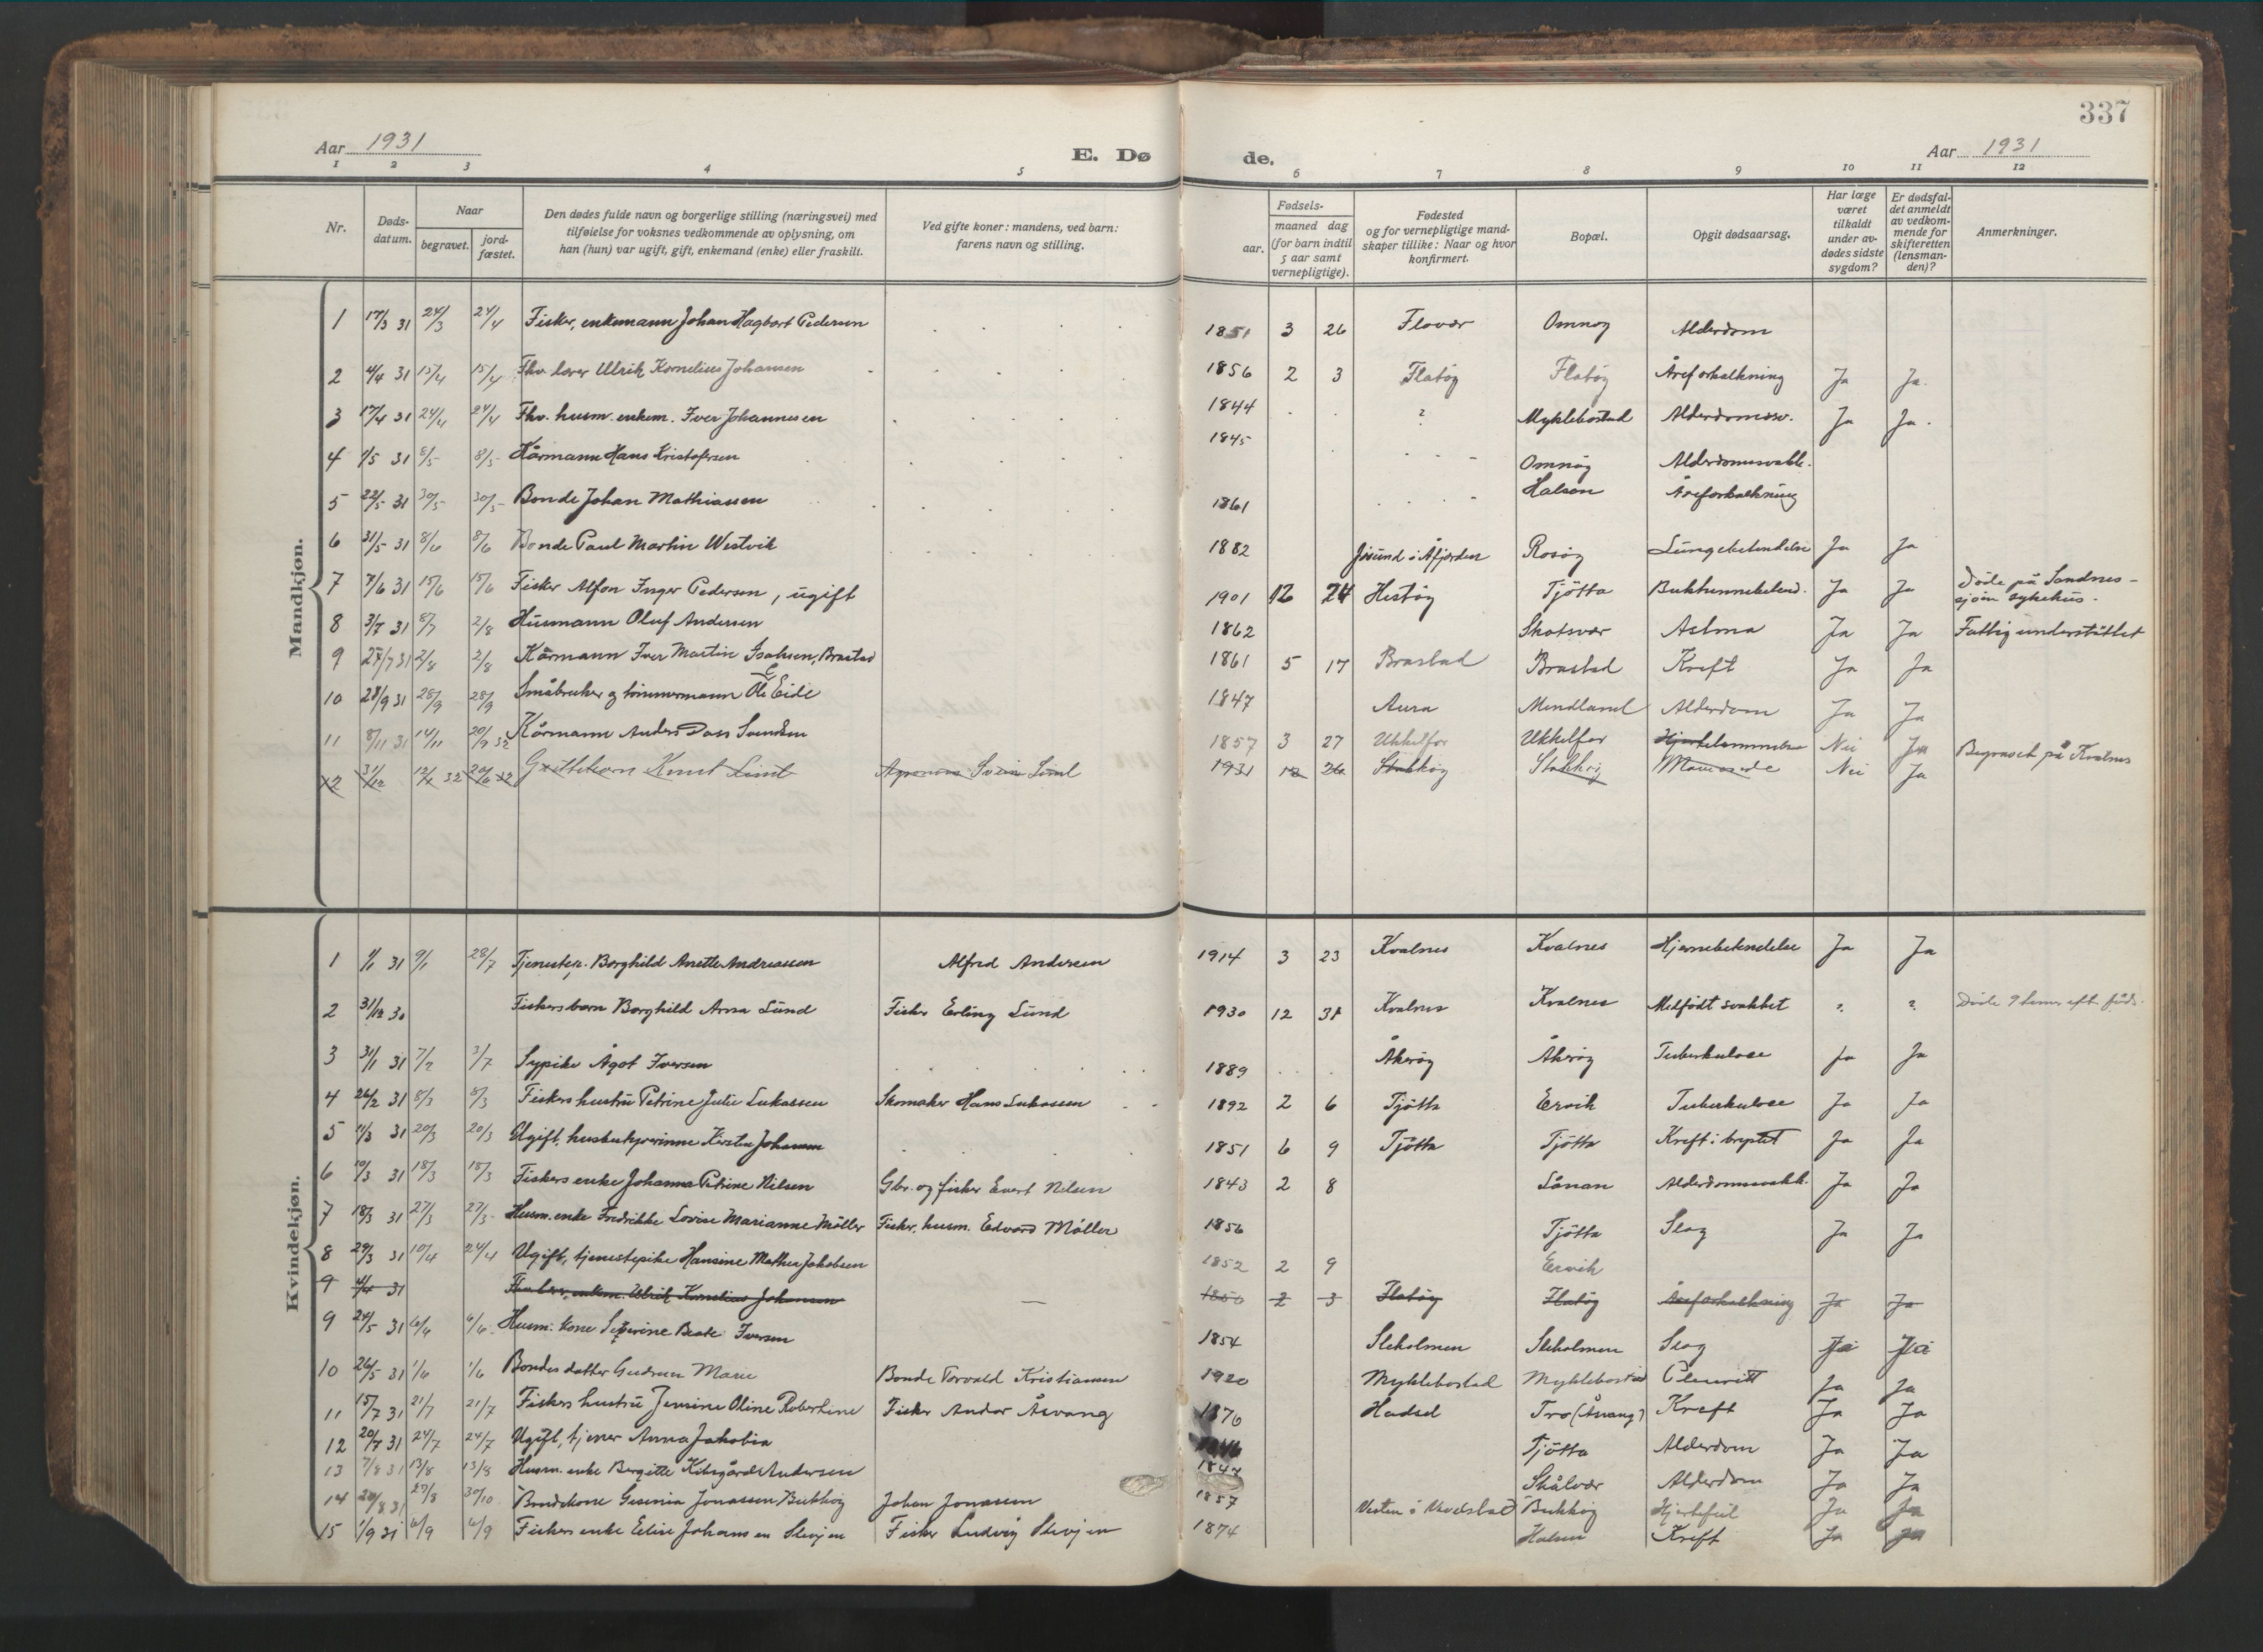 337
Aar 1931
E. Dø
de.
Aar 1931
1 2 3 4 5 6 7 8 9 10 11 12
Nr. Døds-datum. Naar begravet. jord-fæstet. Den dødes fulde navn og borgerlige stilling (næringsvei) med tilføielse for voksnes vedkommende av oplysning, om han (hun) var ugift, gift, enkemand (enke) eller fraskilt. Ved gifte koner: mandens, ved barn: farens navn og stilling. Fødsels- aar. maaned dag (for barn indtil 5 aar samt vernepligtige). Fødested og for vernepligtige mandskaper tillike: Naar og hvor konfirmert. Bopæl. Opgit dødsaarsag. Har læge været tilkaldt under avdødes sidste sygdom? Er dødsfaldet anmeldt av vedkommende for skifteretten (lensmanden)? Anmerkninger.
Mandkjøn.
1 17/3 31 24/3 24/4 Fisker, enkemann Johan Hagbart Pedersen 1851 3 26 Flovær Omnøy Alderdom
2 4/4 31 15/4 15/4 Fhv. lærer Ulrik Kornelius Johansen 1856 2 3 Flatøy Flatøy Åreforkalkning Ja Ja.
3 17/4 31 24/4 24/4 Fhv. husm. enkem. Iver Johannesen 1844 ? Myklebostad Alderdomssv. Ja Ja.
4 1/5 31 8/5 8/5 Kårmann Hans Kristofersen 1845 Omnøy Alderdomssvakk.
5 22/5 31 30/5 30/5 Bonde Johan Mathiassen 1861 Halsen Åreforkalkning
6 31/5 31 8/6 8/6 Bonde Paul Martin Westvik 1882 Jøsund i Åfjorden Rosøy Lungebetendelse Ja Ja
7 7/6 31 15/6 15/6 Fisker Alfon Inger Pedersen, ugift 1901 12 24 Hestøy Tjøtta Bukhinnebetend. Ja Ja Døde på Sandnessjøen sykehus.
8 3/7 31 8/7 2/8 Husmann Oluf Andersen 1862 Skotsvær Astma Ja Ja Fattigunderstøttet
9 27/7 31 2/8 2/8 Kårmann Iver Martin Isaksen, Brastad 1861 5 17 Brastad Brastad Kreft Ja Ja
10 28/9 31 28/9 28/9 Småbruker og tømmermann Ole Eide 1847 Aura Mindland Alderdom Ja Ja
11 8/11 31 14/11 20/9 32 Kårmann Anders Dass Svendsen 1857 3 27 Ukkelfor Ukkelfor Hjertelammelse Nei Ja Begravet på Kvalnes
12 31/12 12/1 32 20/6 32 Guttebarn Knut Lint Svein Lint 1931 12 26 Stokkøy Stokkøy Nei Ja
Kvindekjøn.
1 1/1 31 9/1 28/7 Tjenestep. Borghild Anette Andreassen Alfred Andersen 1914 3 23 Kvalnes Kvalnes Hjernebetendelse Ja Ja
2 31/12 30 Fiskers barn Borghild Arna Lund Fisker Erling Lund 1930 12 31 Kvalnes Kvalnes Medfødt svakhet ? ? Døde 9 timer efter føds.
3 31/1 31 7/2 3/7 Sypike Ågot Iversen 1889 Åkerøy Åkerøy Tuberkulose Ja Ja
4 26/2 31 8/3 8/3 Fiskers hustru Petrine Julie Lukassen Skomaker Hans Lukassen 1892 2 6 Tjøtta Ervik Tuberkulose Ja Ja
5 11/3 31 20/3 20/3 Ugift, husbestyrerinne Kirsten Johansen 1851 6 9 Tjøtta Tjøtta Kreft i brystet Ja Ja
6 10/3 31 18/3 18/3 Fiskers enke Johanna Petrine Nilsen Gbr. og fisker Evert Nilsen 1843 2 8 Lånan Alderdomssvakk. Ja Ja
7 18/3 31 27/3 27/3 Husm. enke Fredrikke Lovise Marianne Møller Fisker, husm. Edvard Møller 1856 Tjøtta Slag Ja Ja
8 29/3 31 10/4 24/4 Ugift, tjenestepike Hansine Mathea Jakobsen 1852 2 9 Ervik
9 4/4 31 Fhv. lærer, enkem. Ulrik Kornelius Johansen — 1856 2 3 Flatøy Flatøy Åreforkalkning Ja Ja
9 24/5 31 6/6 6/6 Husm. kone Severine Beate Iversen 1854 Sleholmen Sleholmen Slag Ja Ja
10 26/5 31 1/6 1/6 Bondes datter Gudrun Marie Bonde Torvald Kristiansen 1920 Myklebostad Myklebostad Pleuritt Ja Ja
11 15/7 31 21/7 21/7 Fiskers hustru Jensine Oline Robertine Fisker Andor Åsvang 1876 Hadsel Tro (Åsvang) Kreft Ja Ja
12 20/7 31 24/7 24/7 Ugift, tjener Anna Jakobia 1846 Tjøtta Alderdom Ja Ja
13 7/8 31 13/8 13/8 Husm. enke Bergitte Kibsgård Andersen 1847 Skålvær Alderdom Ja Ja
14 20/8 31 27/8 30/10 Bondekone Gesinia Jonassen Bukkøy Johan Jonassen 1857 Vesten i Vevelstad Bukkøy Hjertefeil Ja Ja
15 1/9 31 6/9 6/9 Fiskers enke Elise Johansen Slevjen Fisker Ludvig Slevjen 1874 Halsen Kreft Ja Ja